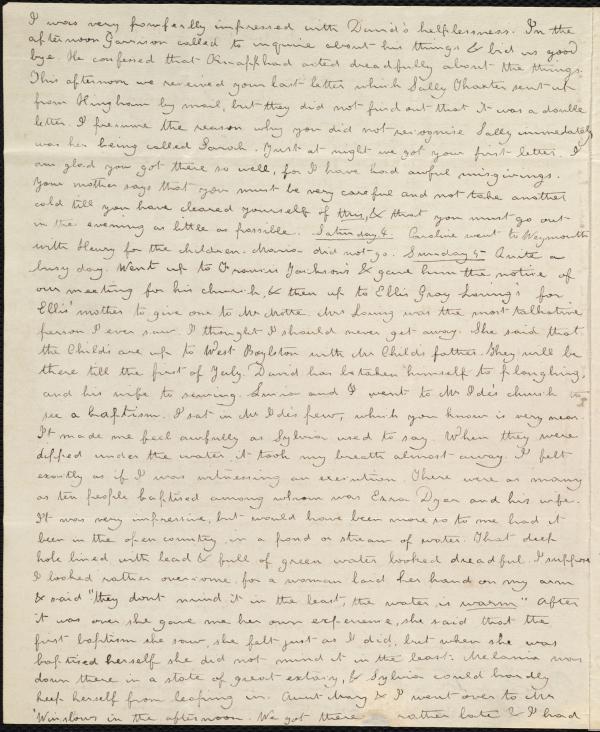 I was very powerfully impressed with David's helplessness. In the
afternoon Garrison called to inquire about his things & bid us good
bye. He confessed that Knapp had acted dreadfully about the things.
This afternoon we received your last letter which Sally Thaxter sent up
from Hingham by mail, but they did not find out that it was a double
letter. I presume the reason why you did not recognise Sally immediately
was her being called Sarah. Just at night we got your first letter. I
am glad you got there so well, for I have had awful misgivings.
Your mother says that you must be very careful and not take another
cold till you have cleared yourself of this, & that you must go out
in the evening as little as possible. Saturday 4. Caroline went to Weymouth
with Henry for the children. Maria did not go. Sunday 5. Quite a
busy day. Went up to Francis Jackson's & gave him the notice of
our meeting for his church, & then up to Ellis Gray Loring's for
Ellis' mother to give one to Mr Motte. Mrs Loring was the most talkative
person I ever saw. I thought I should never get away. She said that
the Childs are up to West Boylston with Mr Child's father. They will be
there till the first of July. David has betaken himself to ploughing,
and his wife to sewing. Lucia and I went to Mr Ide's church to
see a baptism. I sat in Mr Ide's pew, which you know is very near.
It made me feel awfully as Sylvia used to say. When they were
dipped under the water it took my breath almost away. I felt
exactly as if I was witnessing an execution. There were as many
as ten people baptised among whom was Ezra Dyer and his wife.
It was very impressive, but would have been more so to me had it
been in the open country in a pond or stream of water. That deep
hole lined with lead & full of green water looked dreadful. I suppose
I looked rather overcome, for a woman laid her hand on my arm
& said "they dont mind it in the least, the water is warm" After
it was over she gave me her own experience, she said that the
first baptism she saw, she felt just as I did, but when she was
baptised herself she did not mind it in the least. Melania was
down there in a state of great extasy, & Sylvia could hardly
keep herself from leaping in. Aunt Mary & I went over to Mr
Winslows in the afternoon. We got there rather late & I had